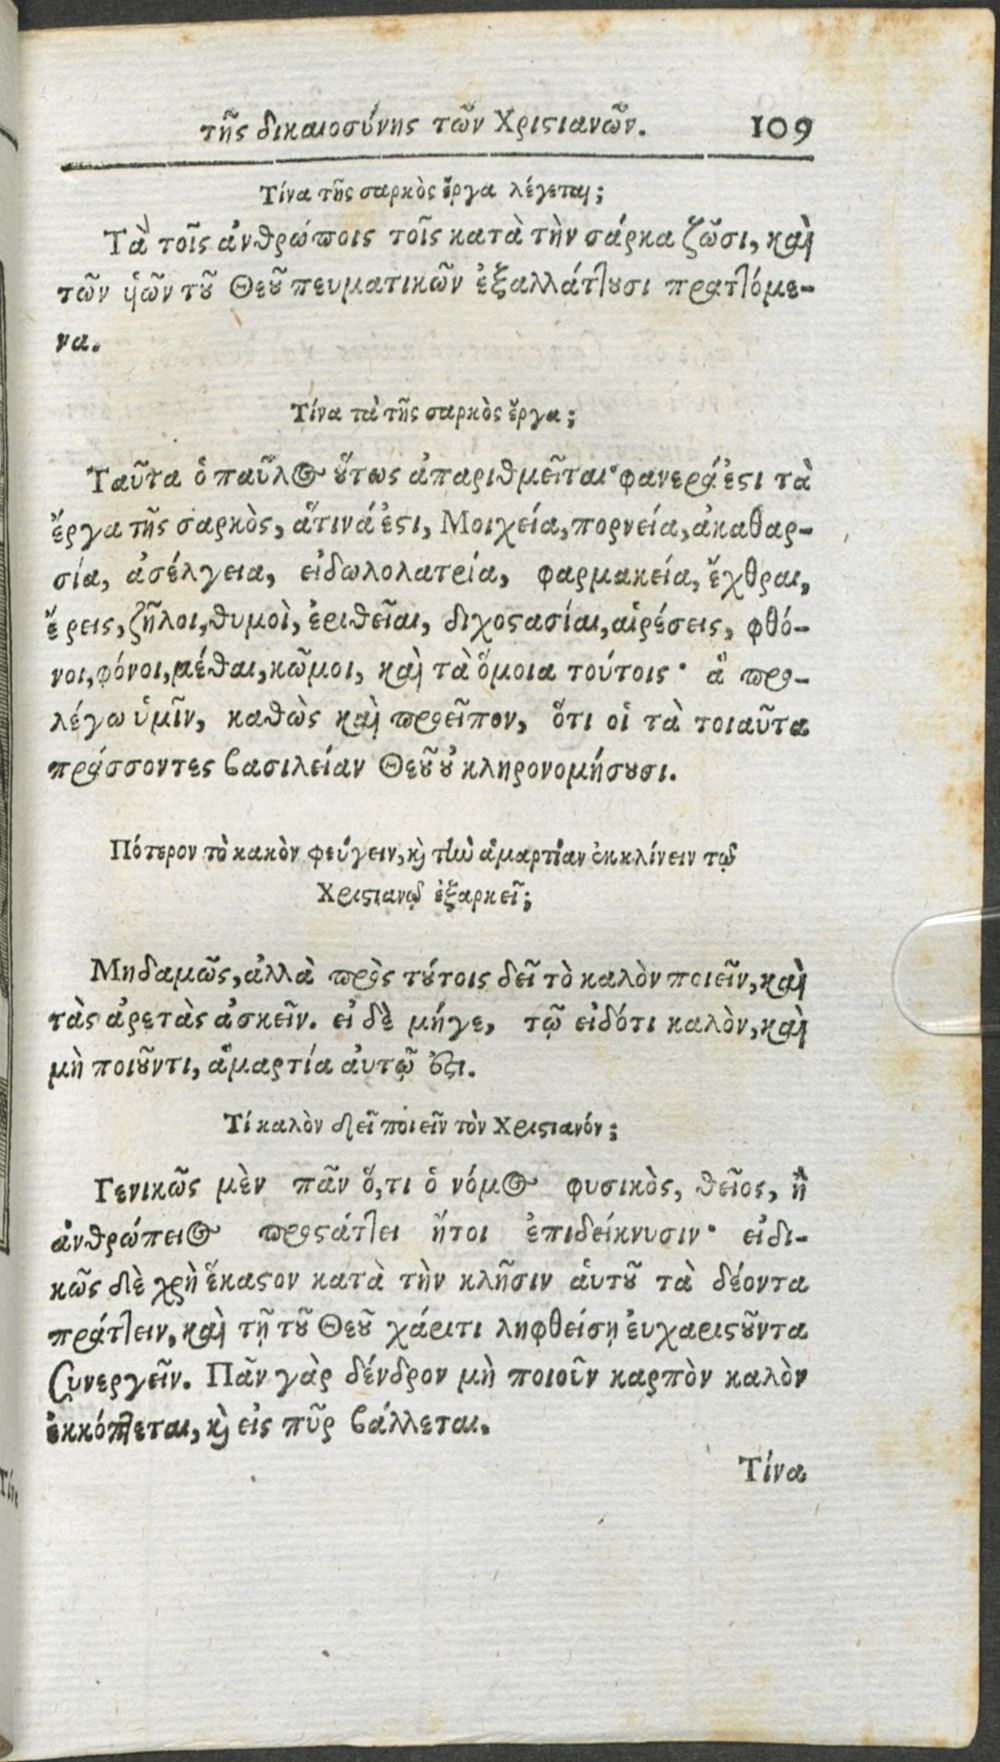 τῆς δικαιοσύνης τῶν Χριστιανῶν. 109
Τίνα τῆς σαρκὸς ἔργα λέγεται;
Τὰ τοῖς ἀνθρώποις τοῖς κατὰ τὴν σάρκα ζῶσι, καὶ
τῶν ὑιῶν τοῦ Θεοῦ πευματικῶν ἐξαλλάττουσι πραττόμε-
να.
Τίνα τὰ τῆς σαρκὸς ἔργα;
Ταῦτα ὁ παῦλος οὕτως ἀπαριθμεῖται· φανερά ἐστι τὰ
ἔργα τῆς σαρκὸς, ἅτινά ἐστι, Μοιχεία, πορνεία, ἀκαθαρ-
σία, ἀσέλγεια, εἰδωλολατρία, φαρμακεία, ἔχθραι,
ἔρεις, ζῆλοι, θυμοὶ, ἐριθεῖαι, διχοστασίαι, αἱρέσεις, φθό-
νοι, φόνοι, μέθαι, κῶμοι, καὶ τὰ ὅμοια τούτοις· ἃ προ-
λέγω ὑμῖν, καθὼς καὶ προεῖπον, ὅτι οἱ τὰ τοιαῦτα
πράσσοντες βασιλείαν Θεοῦ οὐ κληρονομήσουσι.
Πότερον τὸ κακὸν φεύγειν, καὶ τὴν ἁμαρτίαν ἐκκλίνειν τῷ
Χριστιανῷ ἐξαρκεῖ;
Μηδαμῶς, ἀλλὰ πρὸς τούτοις δεῖ τὸ καλὸν ποιεῖν, καὶ
τὰς ἀρετὰς ἀσκεῖν. εἰ δὲ μήγε, τῷ εἰδότι καλὸν, καὶ
μὴ ποιοῦντι, ἁμαρτία ἀυτῷ ἐστι.
Τί καλὸν δεῖ ποιεῖν τὸν Χριστιανόν;
Γενικῶς μὲν πᾶν ὅ,τι ὁ νόμος φυσικὸς, θεῖος, ἢ
ἀνθρώπειος προστάττει ἤτοι ἐπιδείκνυσιν· εἰδι-
κῶς δὲ χρὴ ἕκαστον κατὰ τὴν κλῆσιν ἁυτοῦ τὰ δέοντα
πράττειν, καὶ τῇ τοῦ Θεοῦ χάριτι ληφθείσῃ ἐυχαριστοῦντα
συνεργεῖν. Πᾶν γὰρ δένδρον μὴ ποιοῦν καρπὸν καλὸν
ἐκκόπτεται, καὶ εἰς πῦρ βάλλεται.
Τίνα